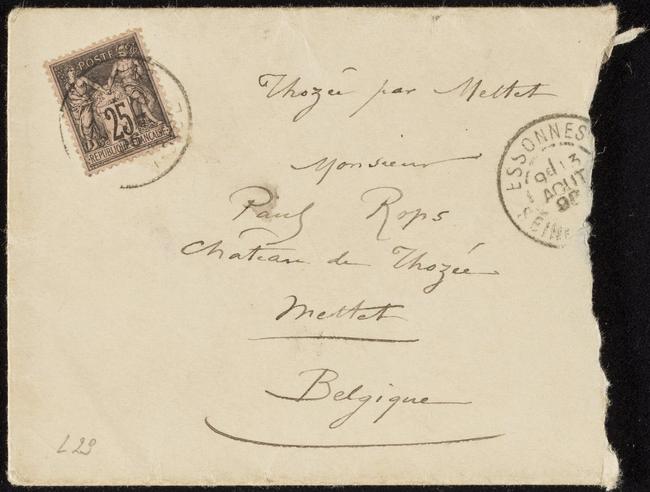 POSTE
25
RÉPUBLIQUE FRANÇAISE
Thozée par Mettet
ESSONNES
13
AOUT
SEINE
Monsieur
Paul Rops
Château de Thozée
Mettet
Belgique
L29